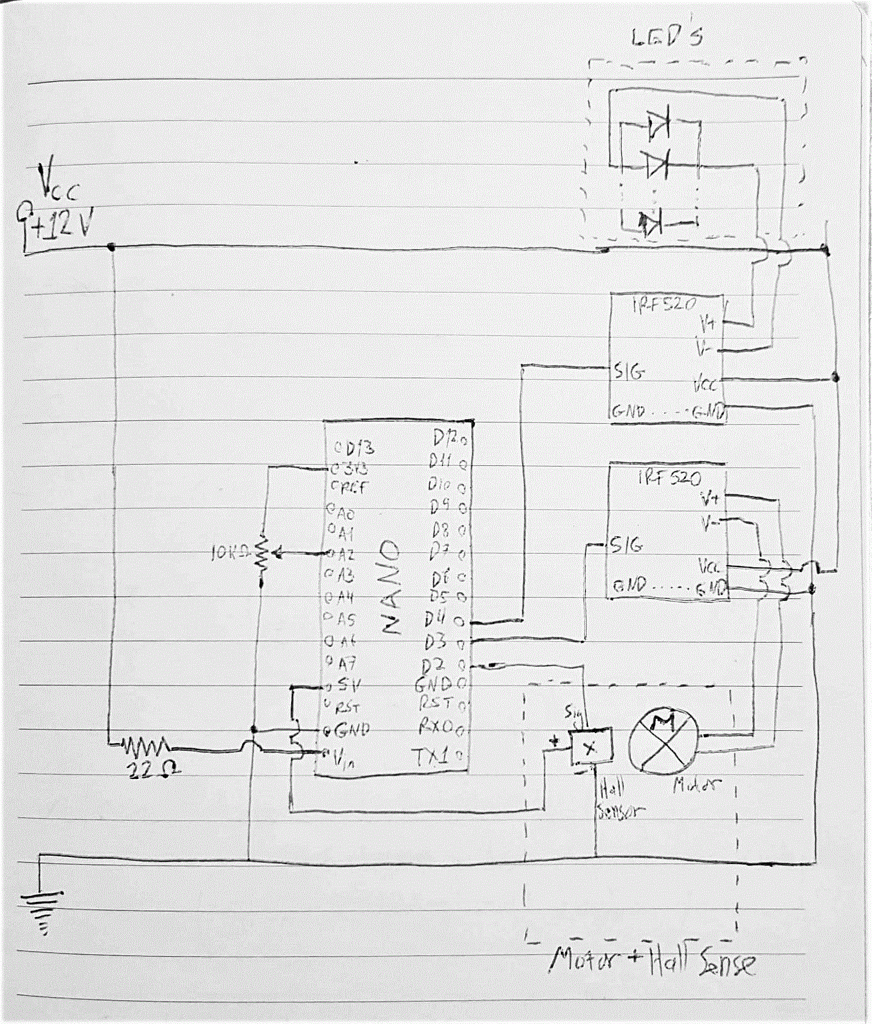 LED's
Vcc
+12V
IRF520
V+
V-
SIG
Vcc
GND.....GND
IRF520
V+
V-
SIG
Vcc
GND.....GND
D13
3V3
REF
A0
A1
A2
A3
A4
A5
A6
A7
5V
RST
GND
Vin
NANO
D12
D11
D10
D9
D8
D7
D6
D5
D4
D3
D2
GND
RST
RX0
TX1
10KΩ
22Ω
Sig
+
X
-
Hall
Sensor
M
Motor
Motor + Hall Sense